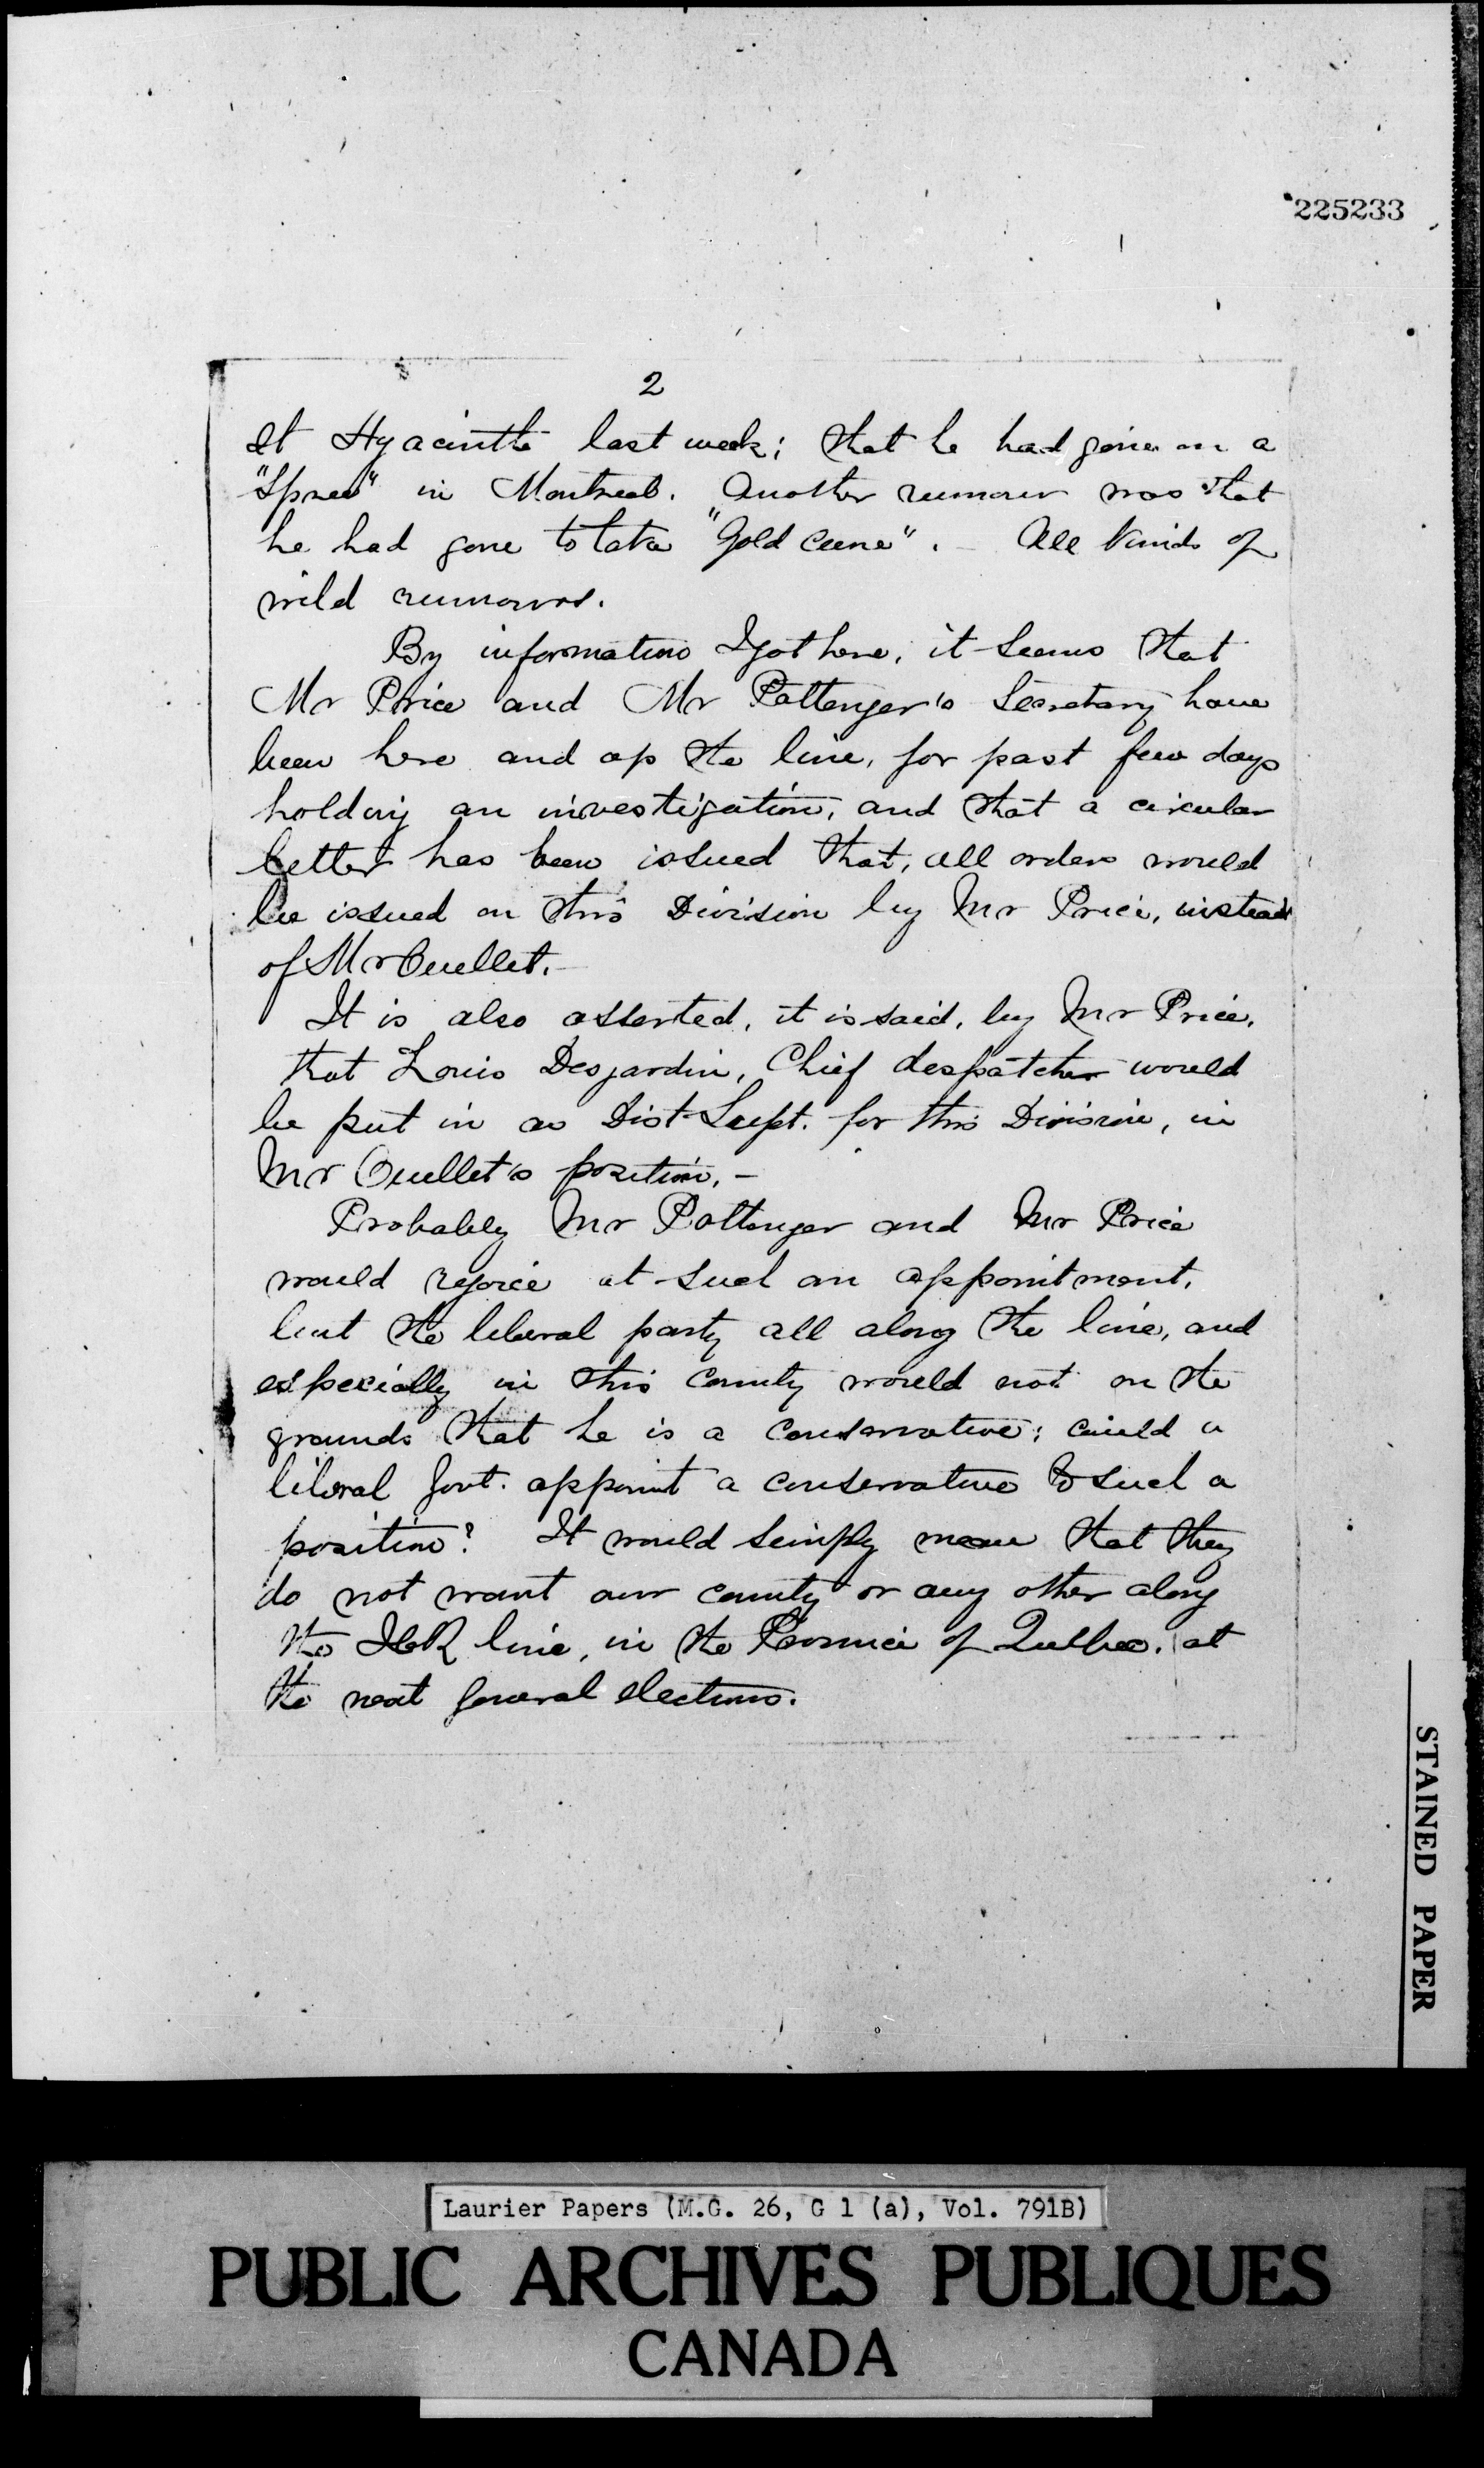 225233
2
St Hyacinthe last week; that he had gone on a
"Spree" in Montreal. Another rumour was that
he had gone to take "Gold Cure". – All kinds of
wild rumours.
By information I got here, it seems that
Mr Price and Mr Pottenger's Secretary have
been here and up the line, for past few days
holding an investigation, and that a circular
letter has been issued that, all orders would
be issued on this Division by Mr Price, instead
of Mr Ouellet. –
It is also asserted, it is said, by Mr Price,
that Louis Desjardin, Chief despatcher would
be put in as Dist Supt. for this Division, in
Mr Ouellet's position. –
Probably Mr Pottenger and Mr Price
would rejoice at such an appointment,
but the liberal party all along the line, and
especially in this County would not on the
grounds that he is a Conservative; could a
liberal Govt. appoint a conservative to such a
position? It would simply mean that they
do not want our county or any other along
the ICR line, in the Province of Quebec, at
the next general elections.
STAINED PAPER
Laurier Papers (M.G. 26, G 1 (a), Vol. 791B)
PUBLIC ARCHIVES PUBLIQUES
CANADA